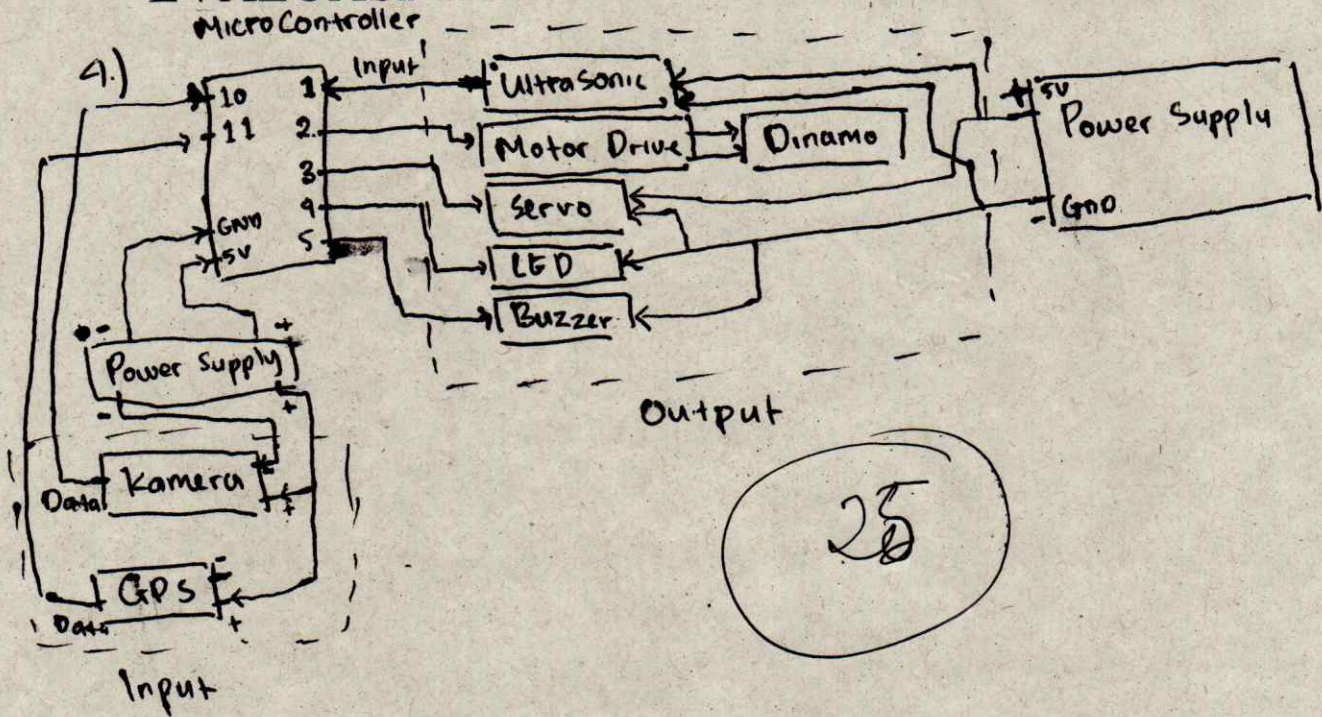 MicroController
4.)
10
11
GND
5V
1
2
3
4
5
Input
Ultrasonic
Motor Drive
Dinamo
Servo
LED
Buzzer
+ 5V
Power Supply
- GND
Output
- +
Power Supply
- +
Kamera
Data
+
GPS
-
Data
+
Input
25